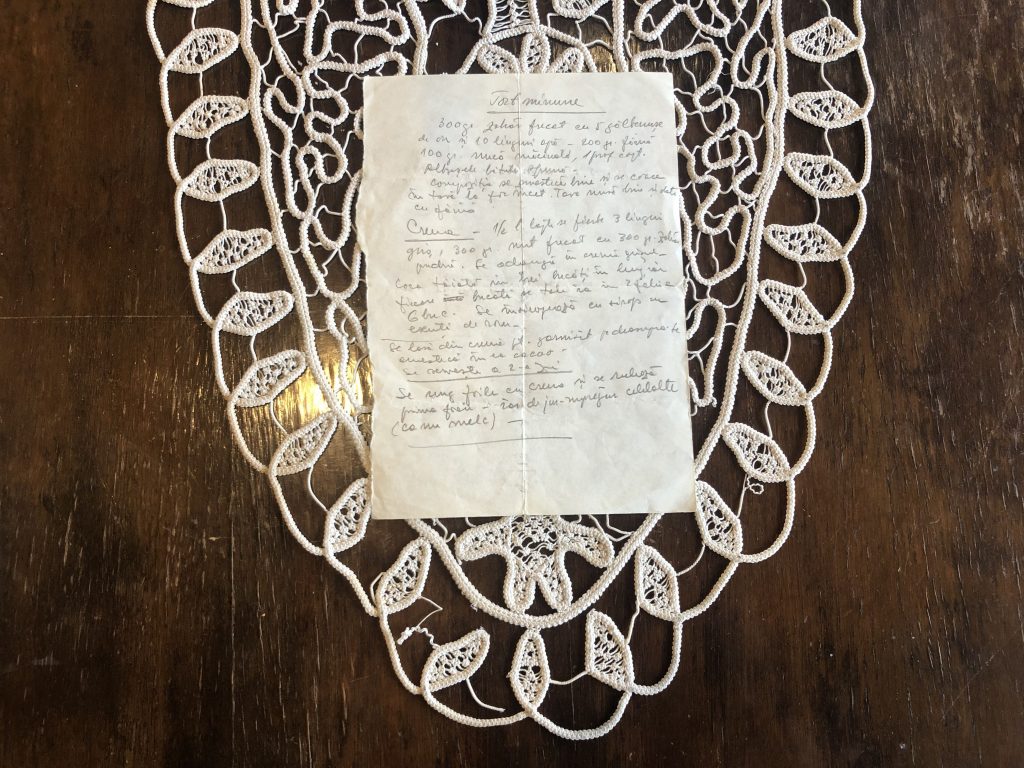 Tort minune
300 gr. zahăr frecat cu 5 gălbenușe
de ou și 10 linguri apă - 200 gr. făină
100 gr. nucă măcinată, 1 praf copt.
Albușele bătute spumă
Compoziția se amestecă bine și se coace
în tavă la foc încet. Tava unsă bine și dată
cu făină
Crema - 1/2 l lapte se fierbe 3 linguri
griș, 300 gr. unt frecat cu 300 gr. zahăr
pudră. Se adaugă în cremă
Coca tăiată în trei bucăți în lung iar
fiecare bucată se taie în 2 felii
6 buc. Se însiropează cu sirop cu
esență de rom
Se lasă din cremă pt. garnisit deasupra
amestecă în ea cacao
Se servește a 2-a zi
Se ung foile cu crema și se rulează
prima foaie - jur-împrejur celelalte
(ca un melc)